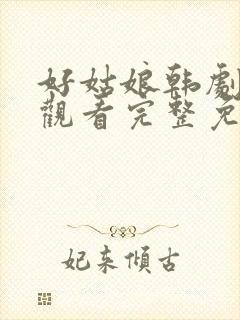 好姑娘韩劇
觀看完整免
妃来傾古